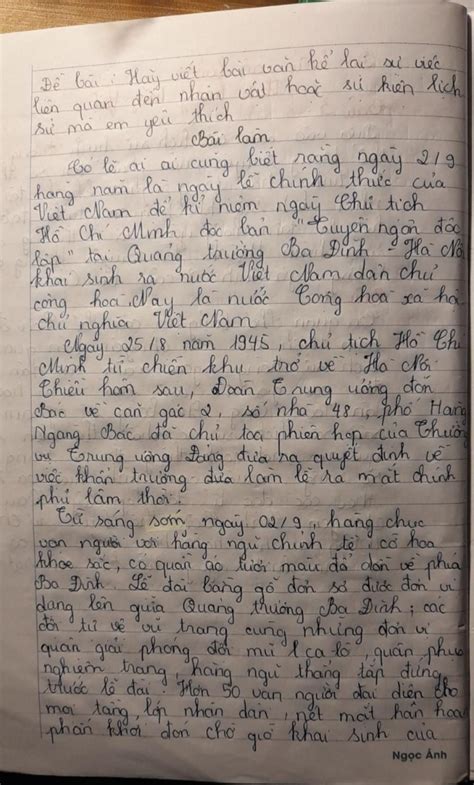 Đề bài : Hãy viết bài văn kể lại sự việc
liên quan đến nhân vật hoặc sự kiện lịch
sử mà em yêu thích
Bài làm
Có lẽ ai ai cũng biết rằng ngày 2/9
hàng năm là ngày lễ chính thức của
Việt Nam để kỉ niệm ngày Chủ tịch
Hồ Chí Minh đọc bản "Tuyên ngôn độc
lập" tại Quảng trường Ba Đình - Hà Nội
khai sinh ra nước Việt Nam dân chủ
cộng hòa. Nay là nước Cộng hòa xã hội
chủ nghĩa Việt Nam.
Ngày 25/8 năm 1945, chủ tịch Hồ Chí
Minh từ chiến khu trở về Hà Nội
Chiều hôm sau, Đoàn Trung ương đón
Bác về căn gác 2, số nhà 48, phố Hàng
Ngang. Bác đã chủ tọa phiên họp của Thường
vụ Trung ương Đảng đưa ra quyết định về
việc khẩn trương đưa làm lễ ra mắt chính
phủ lâm thời.
Từ sáng sớm ngày 02/9, hàng chục
vạn người với hàng ngũ chỉnh tề, cờ hoa
khoe sắc, có quần áo tươi màu đổ dồn về phía
Ba Đình. Lễ đài bằng gỗ đơn sơ được đơn vị
dang lên giữa Quảng trường Ba Đình ; các
đội tự vệ vũ trang cùng những đơn vị
quân giải phóng đội mũ ca lô, quân phục
nghiêm trang, hàng ngũ thẳng tắp đứng
trước lễ đài. Hơn 50 vạn người đại diện cho
mọi tầng lớp nhân dân, nét mặt hân hoan
phấn khởi đón chờ giờ khai sinh của
Ngọc Ánh